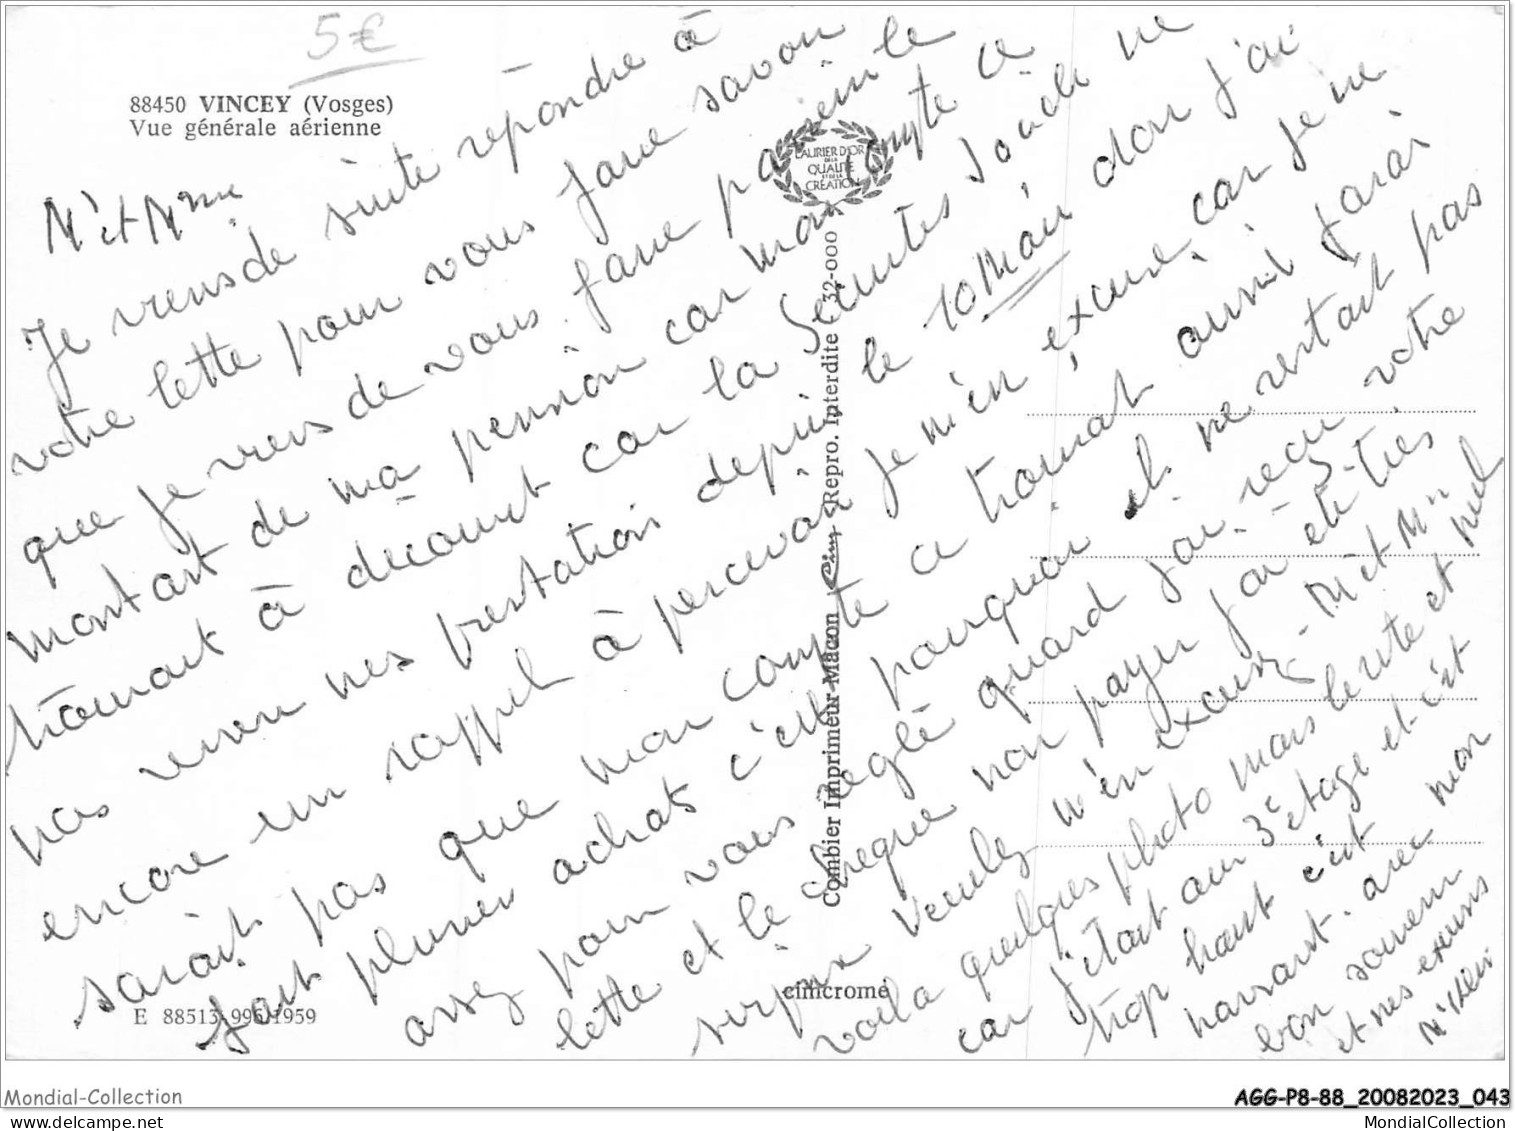 5€
88450 VINCEY (Vosges)
Vue générale aérienne
LAURIER D'OR
DE LA
QUALITÉ
ET DE LA
CRÉATION
Mr et Mme
Je viens de suite répondre à
votre lettre pour vous faire savoir
que je viens de vous faire parvenir le
montant de ma pension car mon compte ce
trouvait à découvert car la Sécurités Sociale ne
pas verser mes prestation depuis le 10 Mai don j'ai
encore un rappel à percevoir je m'en excuse, car je ne
sarait pas que mon compte a trouvait aussi j'avais
fait plusieur achats c'est pourquoi il ne restait pas
assez pour vous reglé quand j'ai recu votre
lettre et le cheque non payer j'ai eté très
surpris Veuillez m'en excuser - Mr et Mme
voila quelques photo mais le reste et
car j'etait au 3e etage et c'est
trop haut c'est
avec mon
bon souvenir
et mes excuses
Combier Imprimeur Mâcon Cim Repro. Interdite C 32-000
cimcrome
E 88513 996 1959
Mondial-Collection
AGG-P8-88_20082023_043
www.mondialcollection.com
MondialCollection